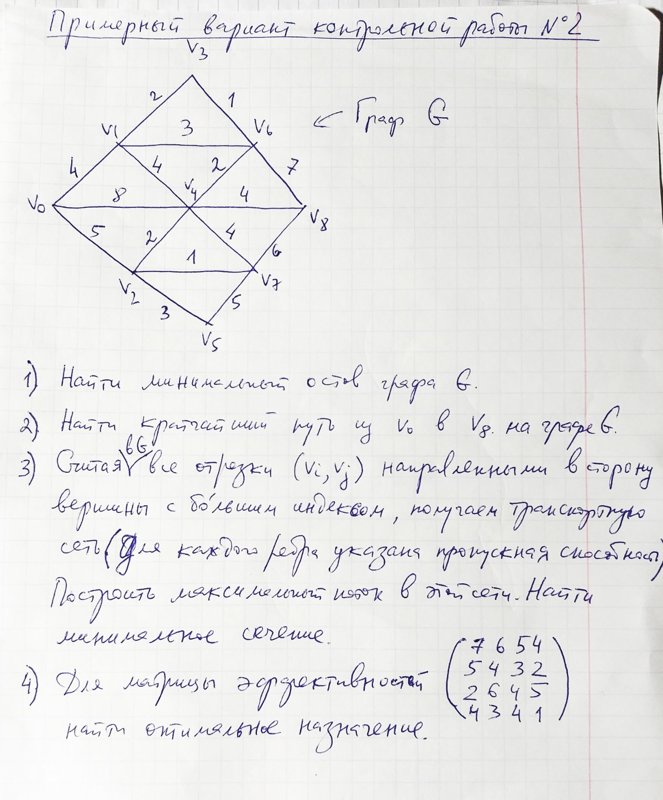 Примерный вариант контрольной работы №2
V3
2
1
← Граф G
V1
3
V6
4
4
2
7
V4
V0
8
4
V8
5
2
4
6
1
V2
V7
3
5
V5
1) Найти минимальный остов графа G.
2) Найти кратчайший путь из V0 в V8 на графе G.
3) Считая в G все отрезки (Vi, Vj) направленными в сторону
вершины с бо́льшим индексом, получаем транспортную
сеть (Для каждого ребра указана пропускная способность)
Построить максимальный поток в этой сети. Найти
минимальное сечение.
4) Для матрицы эффективностей
7 6 5 4
5 4 3 2
2 6 4 5
4 3 4 1
найти оптимальное назначение.